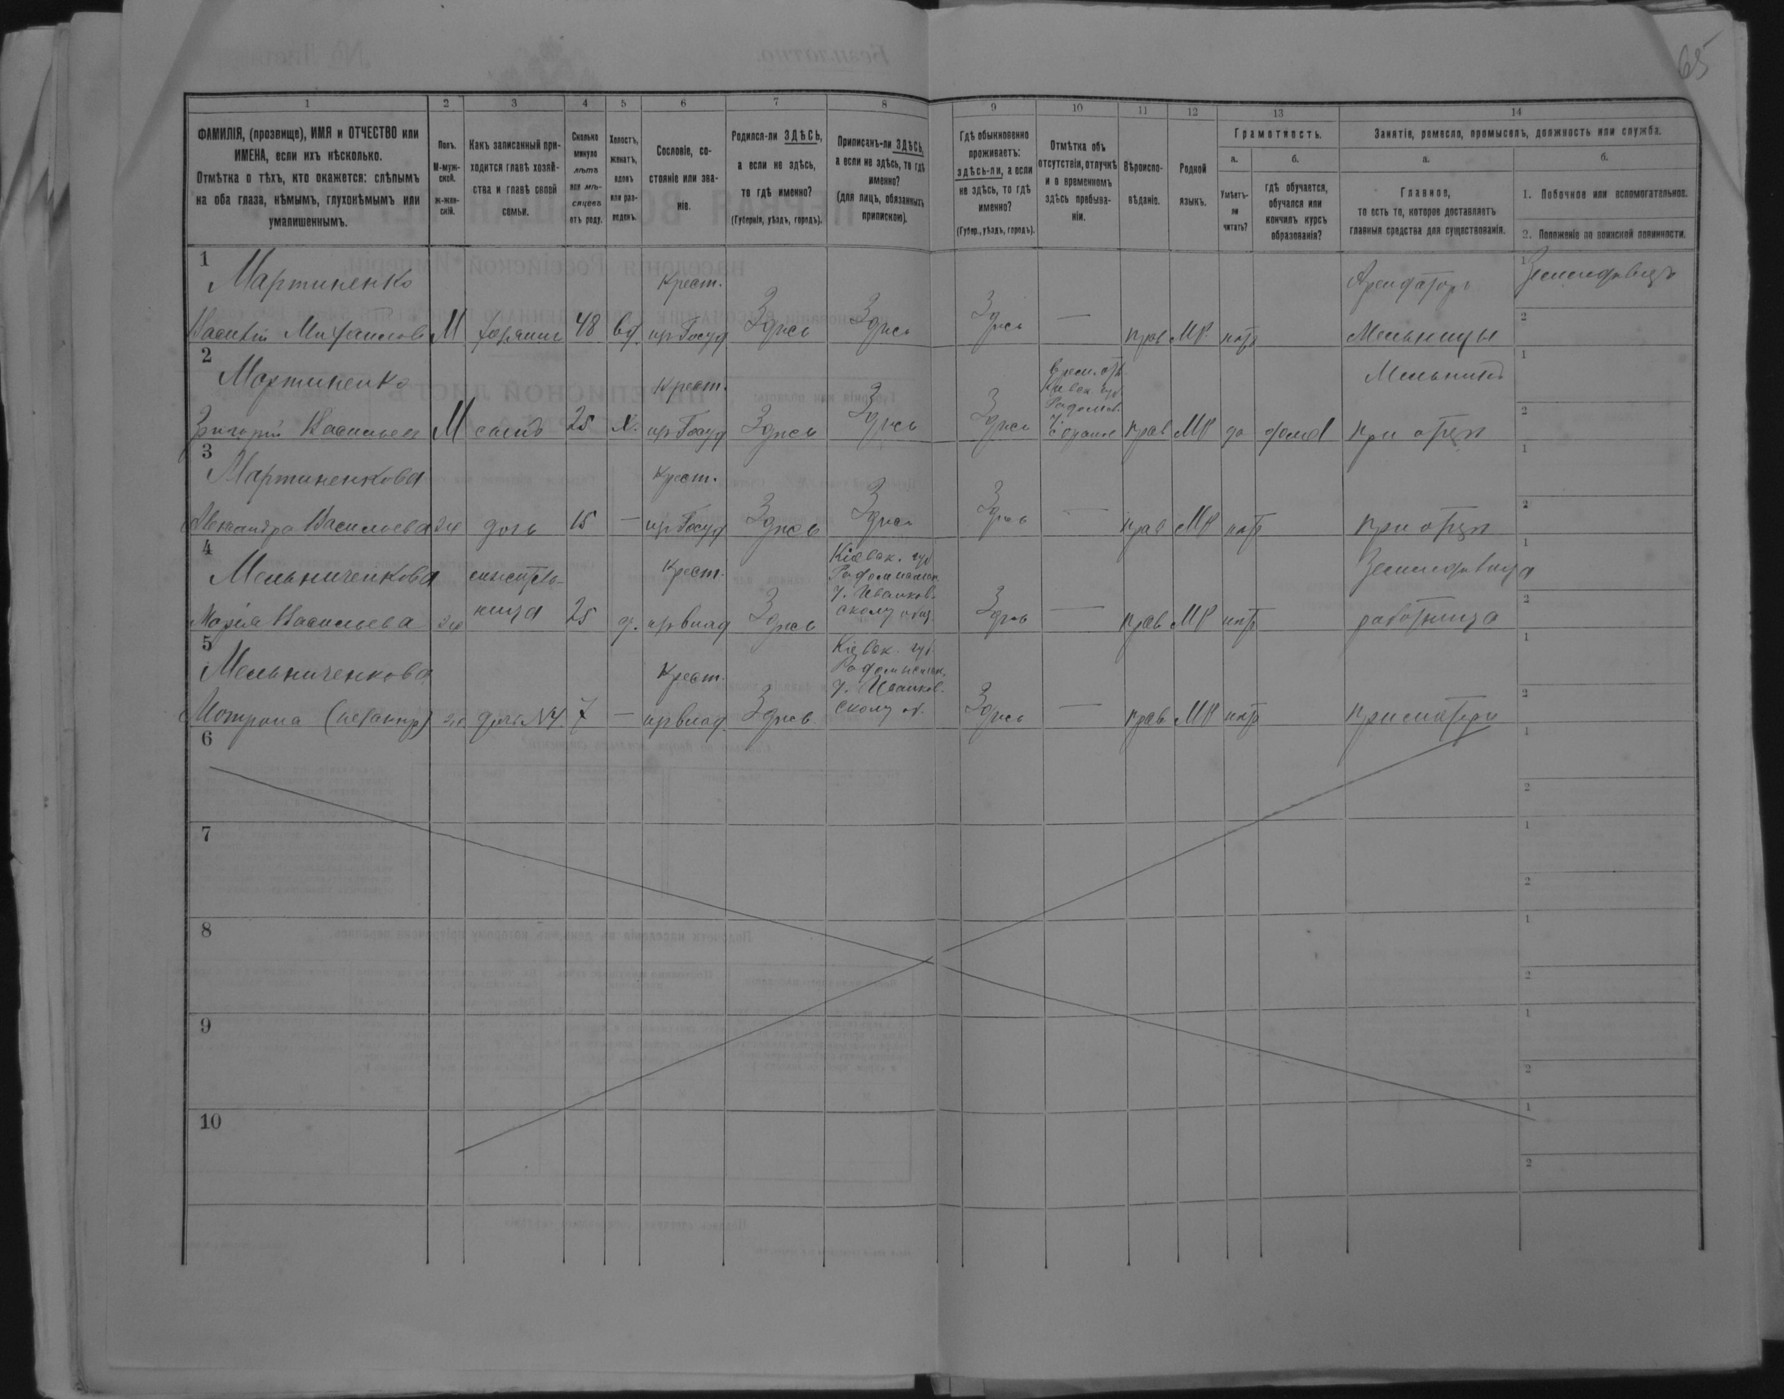 65
1 2 3 4 5 6 7 8 9 10 11 12 13 14
ФАМИЛІЯ, (прозвище), ИМЯ и ОТЧЕСТВО или
ИМЕНА, если ихъ нѣсколько.
Отмѣтка о тѣхъ, кто окажется: слѣпымъ
на оба глаза, нѣмымъ, глухонѣмымъ или
умалишеннымъ.
Полъ.
М-муж-
ской.
ж-жен-
скій.
Какъ записанный при-
ходится главѣ хозяй-
ства и главѣ своей
семьи.
Сколько
минуло
лѣтъ
или мѣ-
сяцевъ
отъ роду.
Холостъ,
женатъ,
вдовъ
или раз-
веденъ.
Сословіе, со-
стояніе или зва-
ніе.
Родился-ли ЗДѢСЬ,
а если не здѣсь,
то гдѣ именно?
(Губернія, уѣздъ, городъ).
Приписанъ-ли ЗДѢСЬ,
а если не здѣсь, то гдѣ
именно?
(для лицъ, обязанныхъ
припискою).
Гдѣ обыкновенно
проживаетъ:
здѣсь-ли, а если
не здѣсь, то гдѣ
именно?
(Губер., уѣздъ, городъ).
Отмѣтка объ
отсутствіи, отлучкѣ
и о временномъ
здѣсь пребыва-
ніи.
Вѣроиспо-
вѣданіе.
Родной
языкъ.
Грамотность.
а.
Умѣетъ-
ли
читать?
б.
гдѣ обучается,
обучался или
кончилъ курсъ
образованія?
Занятіе, ремесло, промыселъ, должность или служба.
а.
Главное,
то есть то, которое доставляетъ
главныя средства для существованія.
б.
1. Побочное или вспомогательное.
2. Положеніе по воинской повинности.
1
Мартиненко Крест. Арендаторъ 1 Земледѣлецъ
Василій Михайловъ М хозяинъ 48 вд. изъ Госуд Здѣсь Здѣсь Здѣсь — прав МР. нѣтъ Мельницы 2
2
Мартиненко Крест. Мельникъ 1
Григорій Васильевъ М сынъ 25 Х. изъ Госуд Здѣсь Здѣсь Здѣсь прав МР да дома при отцѣ 2
3
Мартиненкова Крест. 1
Васильева ж дочь 15 — изъ Госуд Здѣсь Здѣсь Здѣсь — прав МР нѣтъ при отцѣ 2
4
Мельниченкова Крест. Кіевск. губ Земледѣлица 1
Радомысльск.
Марія Васильева ж ница 25 изъ влад Здѣсь Здѣсь — прав МР нѣтъ работница 2
5
Мельниченкова Крест. Кіевск. губ 1
Радомысльск.
Мотрона ж дочь №4 7 — изъ влад Здѣсь Здѣсь — прав МР нѣтъ при матери 2
6 1
2
7 1
2
8 1
2
9 1
2
10 1
2